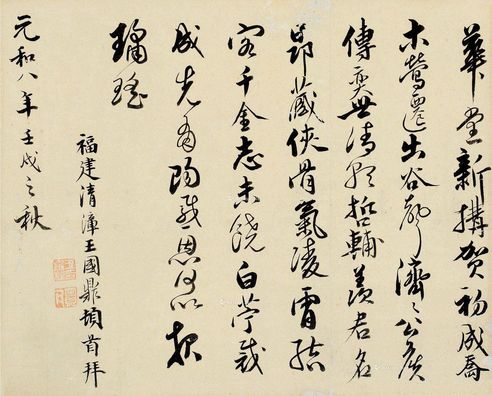 華堂新搆賀初成喬
木鶯遷出谷聲濟〻公侯
傳奕世清朝哲輔羨君名
昂藏俠骨氣凌霄結
客千金志未饒白苧裁
成先有賜感恩何以報
瓊瑤
福建清漳王國鼎頓首拜
元和八年壬戌之秋